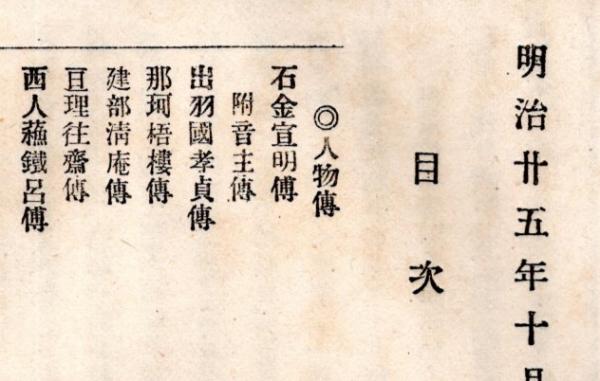 明治廿五年十月
目次
◎人物傳
石金宣明傳
附音主傳
出羽國孝貞傳
那珂梧樓傳
建部淸庵傳
亘理往齋傳
西人蘓鐵呂傳